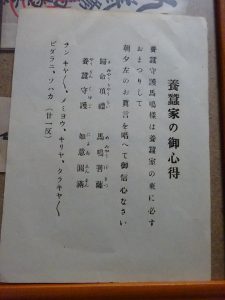 養蠶家の御心得
養蠶守護馬鳴様は養蠶室の東に必す
おまつりして
朝夕左のお眞言を唱へて御信心なさい
歸命頂禮　馬鳴菩薩
養蠶守護　如意圓滿
ラン　キヤ〱、ノミヨウ、キリヤ、タラキヤ〱
ビダラニ、ソハカ（廿一反）